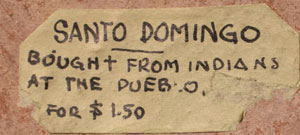 SANTO DOMINGO
BOUGHT FROM INDIANS
AT THE PUEBLO.
FOR $1.50